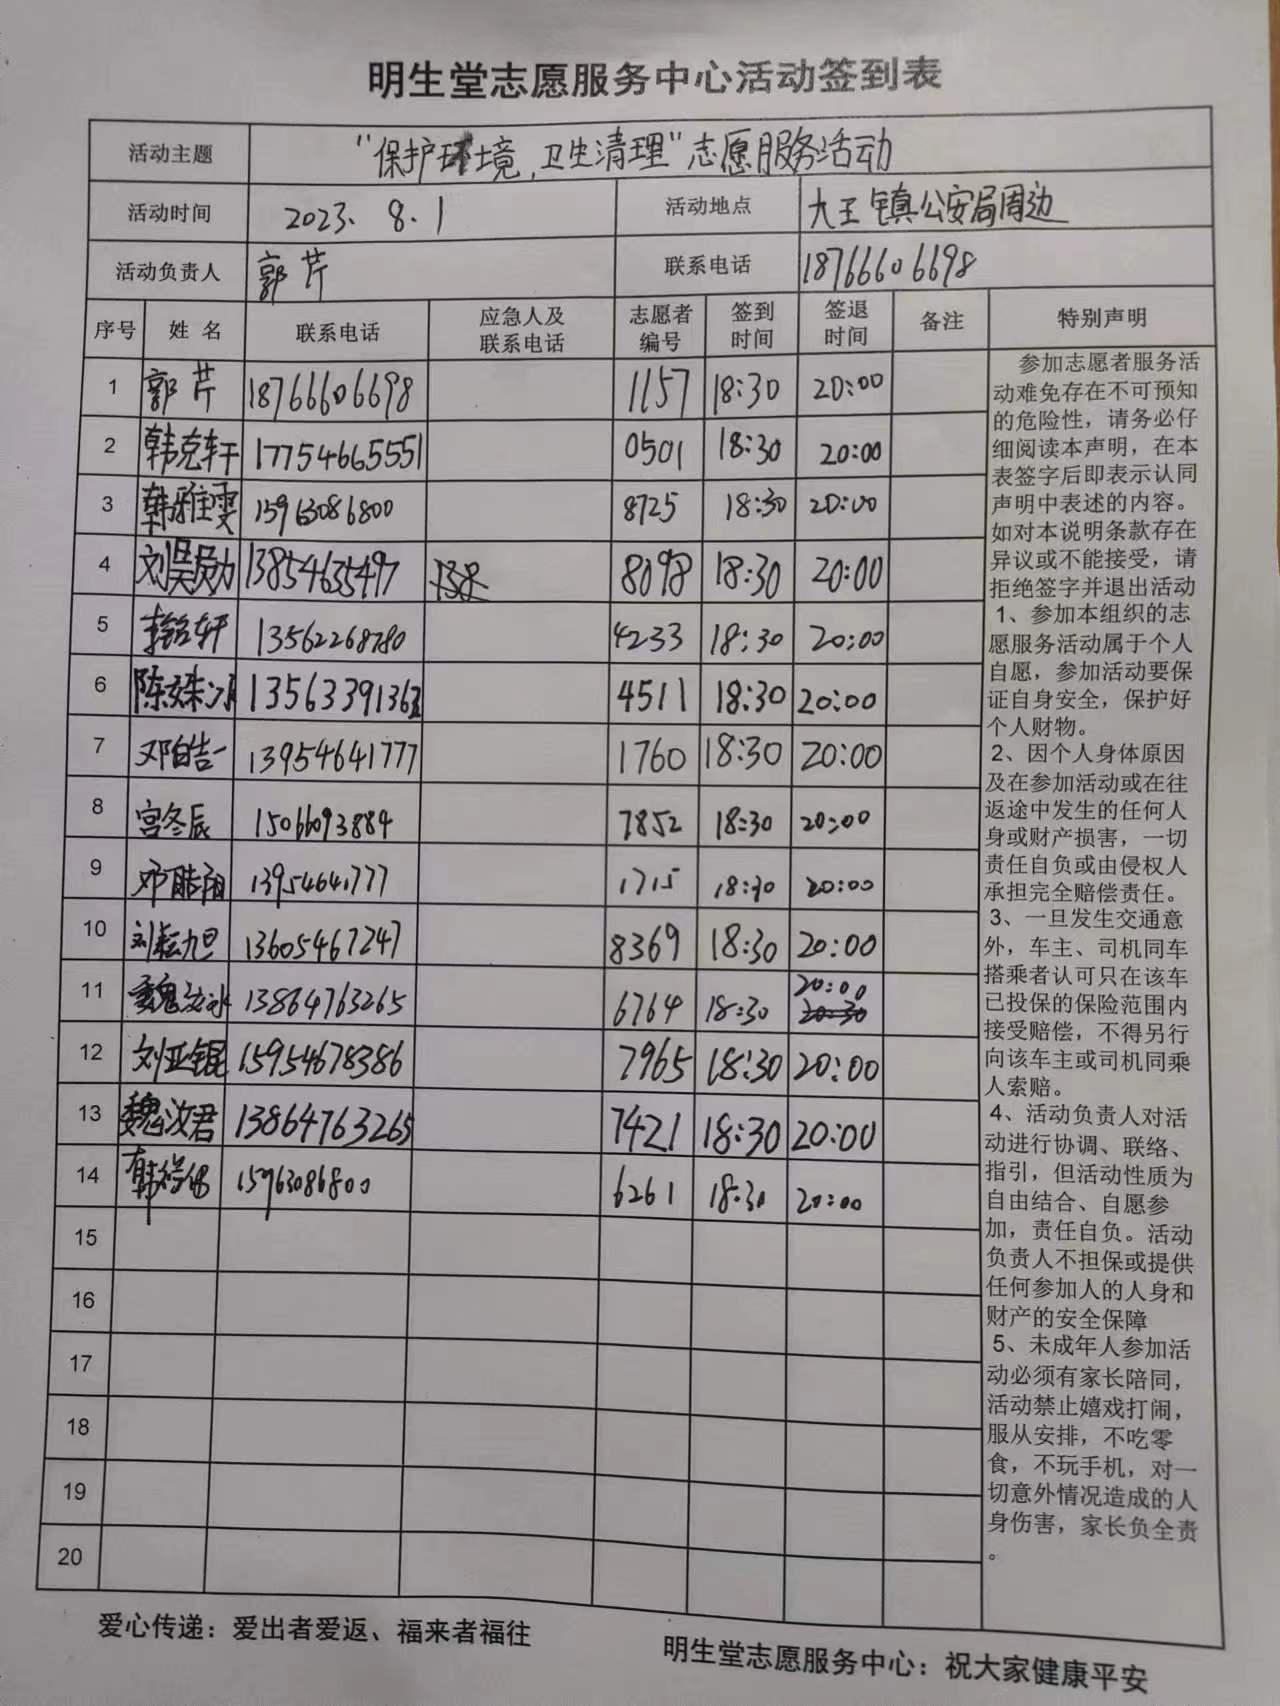 明生堂志愿服务中心活动签到表
活动主题 “保护环境,卫生清理”志愿服务活动
活动时间 2023. 8. 1 活动地点 大王镇公安局周边
活动负责人 郭芹 联系电话 18766606698
序号 姓名 联系电话 应急人及联系电话 志愿者编号 签到时间 签退时间 备注 特别声明
1 郭芹 18766606698 1157 18:30 20:00
2 韩克轩 17754665551 0501 18:30 20:00
3 韩雅雯 15963086800 8725 18:30 20:00
4 13854635497 8098 18:30 20:00
5 李铭轩 13562268780 4233 18:30 20:00
6 陈姝冰 4511 18:30 20:00
7 邓皓一 13954641777 1760 18:30 20:00
8 宫冬辰 15066093884 7852 18:30 20:00
9 邓皓阳 13954641777 1715 18:30 20:00
10 刘耘旭 13605467247 8369 18:30 20:00
11 魏汝冰 13864763265 6764 18:30 20:00
12 刘亚锟 15954678386 7965 18:30 20:00
13 魏汝君 13864763265 7421 18:30 20:00
14 15963086800 6261 18:30 20:00
15
16
17
18
19
20
参加志愿者服务活
动难免存在不可预知
的危险性,请务必仔
细阅读本声明,在本
表签字后即表示认同
声明中表述的内容。
如对本说明条款存在
异议或不能接受,请
拒绝签字并退出活动
1、参加本组织的志
愿服务活动属于个人
自愿,参加活动要保
证自身安全,保护好
个人财物。
2、因个人身体原因
及在参加活动或在往
返途中发生的任何人
身或财产损害,一切
责任自负或由侵权人
承担完全赔偿责任。
3、一旦发生交通意
外,车主、司机同车
搭乘者认可只在该车
已投保的保险范围内
接受赔偿,不得另行
向该车主或司机同乘
人索赔。
4、活动负责人对活
动进行协调、联络、
指引,但活动性质为
自由结合、自愿参
加,责任自负。活动
负责人不担保或提供
任何参加人的人身和
财产的安全保障
5、未成年人参加活
动必须有家长陪同,
活动禁止嬉戏打闹,
服从安排,不吃零
食,不玩手机,对一
切意外情况造成的人
身伤害,家长负全责
。
爱心传递:爱出者爱返、福来者福往
明生堂志愿服务中心:祝大家健康平安